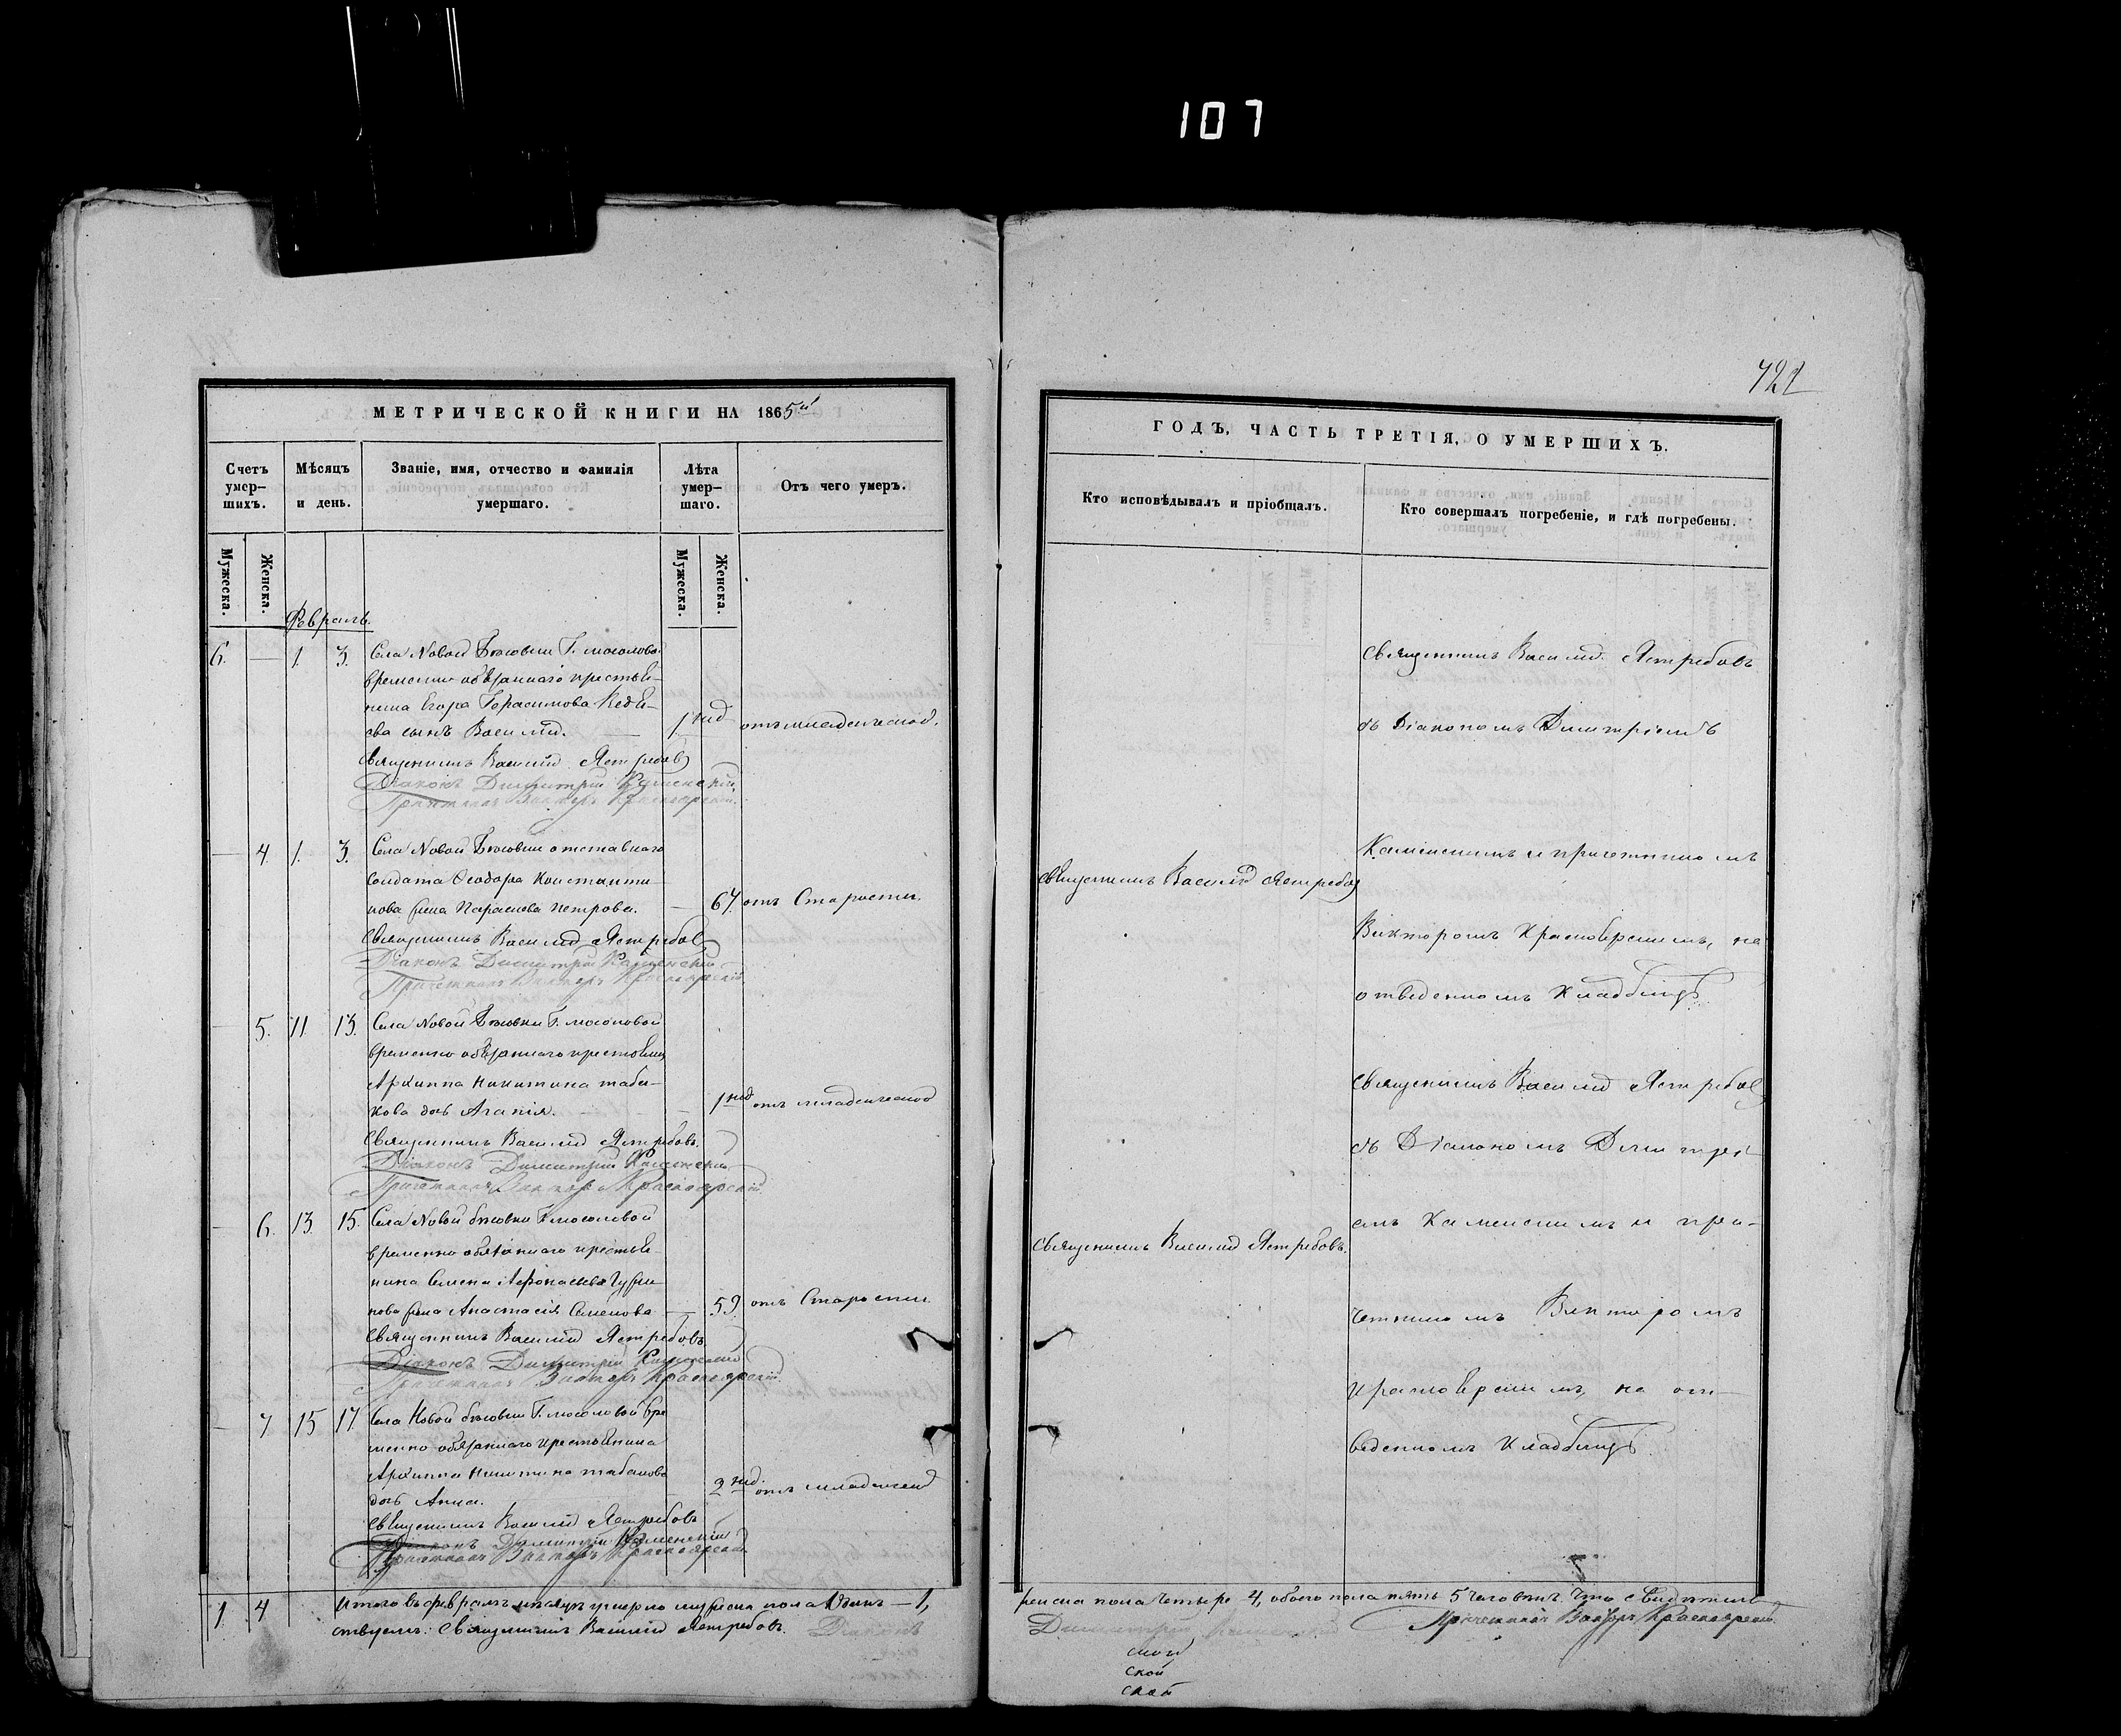 107
721
МЕТРИЧЕСКОЙ КНИГИ НА 1865й
Счетъ умер-
шихъ.
Мѣсяцъ
и день.
Званіе, имя, отчество и фамилія
умершаго.
Лѣта
умер-
шаго.
Отъ чего умеръ.
Мужеска.
Женска.
Мужеска.
Женска.
Февраль.
6. — 1. 3. Села Новой
временно обязаннаго крестья-
нина Егора Герасимова
ева сынъ Василій. — 1 нед отъ младенческой.
Священникъ Василій Ястребовъ
Діаконъ Димитрій Каменскій
Причетникъ Викторъ Красноярскій
— 4. 1. 3. Села Новой отставнаго
солдата Ѳеодора Константи-
нова жена Параскева Петрова. — 67. отъ Старости.
Священникъ Василій Ястребовъ
Діаконъ Димитрій Каменскій
Причетникъ Викторъ Красноярскій
— 5. 11 13. Села Новой
временно обязаннаго крестьянина
Архиппа Никитина Таба-
кова дочь Агапія. — 1 нед отъ младенческой
Священникъ Василій Ястребовъ.
Діаконъ Димитрій Каменскій
Причетникъ Викторъ Красноярскій
— 6. 13. 15. Села Новой
временно обязаннаго крестья-
нина Семена
нова жена Анастасія Семенова — 59. отъ Старости
Священникъ Василій Ястребовъ
Діаконъ Димитрій Каменскій
Причетникъ Викторъ Красноярскій
— 7 15 17. Села Новой вре
менно обязаннаго крестьянина
Архиппа Никитина Табакова
дочь Анна. — 2 нед. отъ младенческой
Священникъ Василій Ястребовъ
Діаконъ Димитрій Каменскій
Причетникъ Викторъ Красноярскій
1 4 Итого въ февралѣ мѣсяцѣ умерло мужеска пола Одинъ — 1,
ствуемъ: Священникъ Василій Ястребовъ. Діаконъ
ГОДЪ, ЧАСТЬ ТРЕТІЯ, О УМЕРШИХЪ.
Кто исповѣдывалъ и пріобщалъ.
Кто совершалъ погребеніе, и гдѣ погребены.
Священникъ Василій Ястребовъ
съ Діакономъ Димитріемъ
Каменскимъ и причетникомъ
Священникъ Василій Ястребовъ
Викторомъ Красноярскимъ, на
отведенномъ Кладбищѣ.
Священникъ Василій Ястребовъ
съ Діакономъ Димитрі
емъ Каменскимъ и при-
Священникъ Василій Ястребовъ.
четникомъ Викторомъ
Красноярскимъ, на от-
веденномъ Кладбищѣ.
женска пола четыре 4, обоего пола пять 5 человѣкъ. Что свидѣтель
Димитрій Каменскій Причетникъ Викторъ Красноярскій
ской
ской